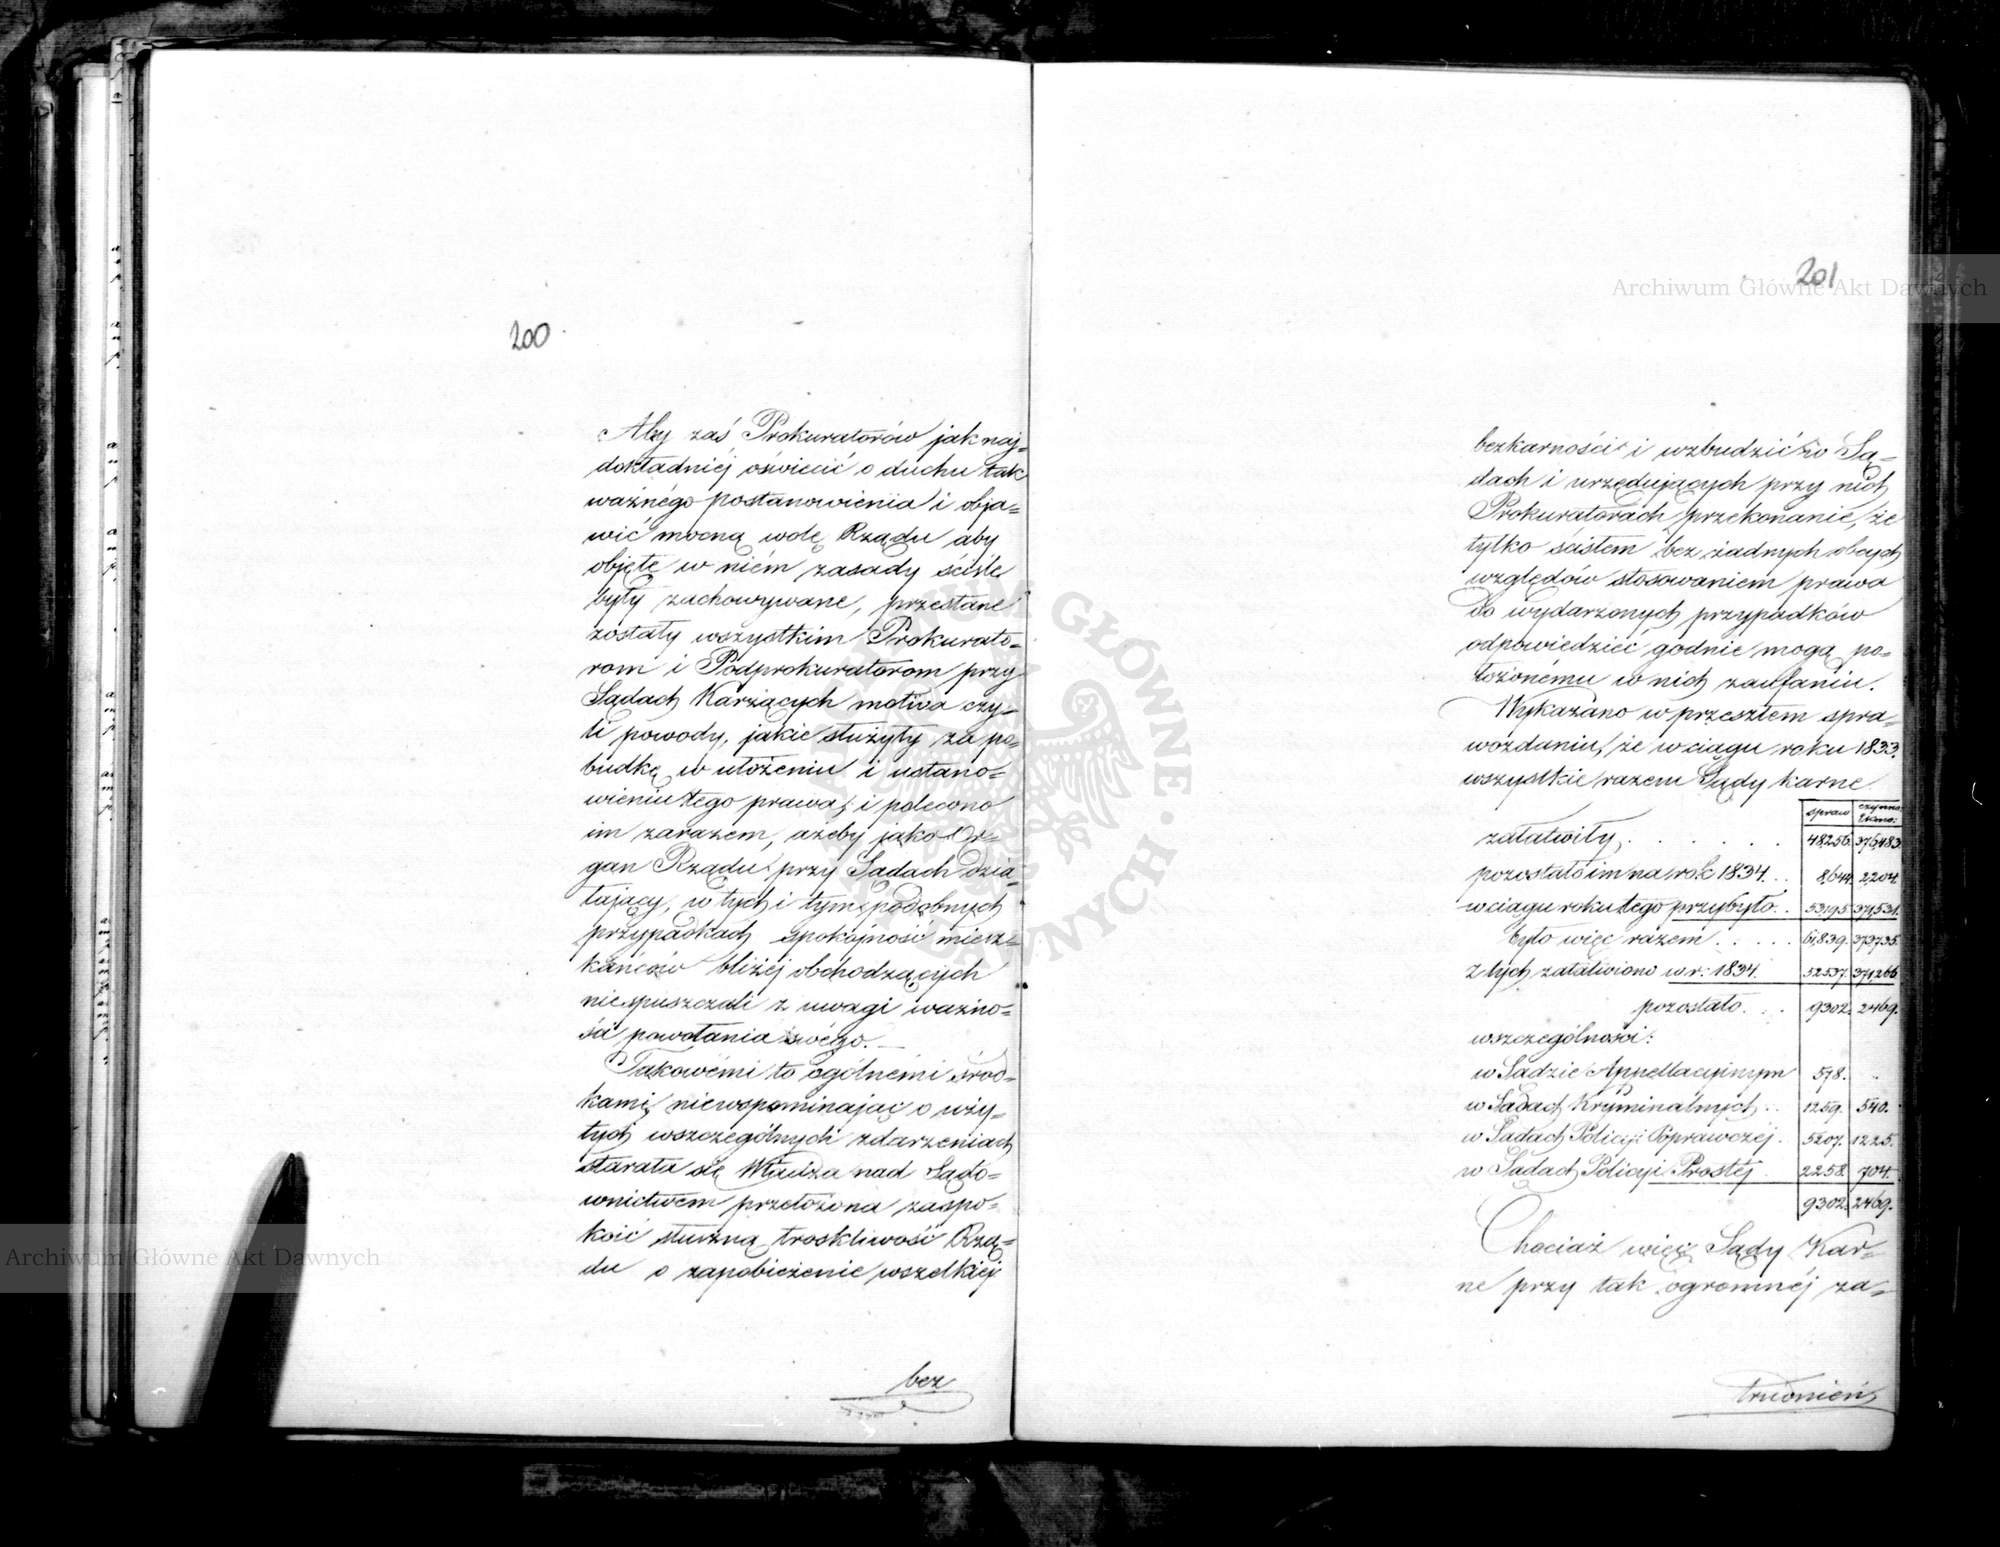 200
Aby zaś Prokuratorów jak naj=
dokładniéj oświecić o duchu tak
ważnego postanowienia i obja=
wić mocną wolę Rządu aby
objęte w niém zasady ściśle
były zachowywane, przesłane
zostały wszystkim Prokurato=
rom i Podprokuratorom przy
Sądach Karzących motiva czy=
li powody, jakie służyły za po=
budkę w ułożeniu i ustano=
wieniu tego prawa, i polecono
im zarazem, ażeby jako Or=
gan Rządu przy Sądach dzia=
łający, w tych i tym podobnych
przypadkach spokojność miesz=
kańców bliżéj obchodzących
niespuszczali z uwagi ważno=
ść powołania swégo.
Takowémi to ogólnémi środ=
kami, niewspominając o uży=
tych wszczególnych zdarzeniach
starała się Władza nad Sądo=
wnictwem przełożona zaspo=
koić słuszną troskliwość Rzą=
du o zapobieżenie wszelkiéj
bez
201
bezkarności i wzbudzić w Są=
dach i urzędujących przy nich
Prokuratorach przekonanie, że
tylko ścisłem bez żadnych obcych
względów stosowaniem prawa
do wydarzonych przypadków
odpowiedzieć godnie mogą po=
łożonému w nich zaufaniu.
Wykazano w przeszłem spra=
wozdaniu, że w ciągu roku 1833.
wszystkie razem Sądy karne
spraw czynno=
załatwiły . . . . . . 48,256. 376,483.
pozostało im na rok 1834. . . 8,644. 2,204.
w ciągu roku tego przybyło. . 53,195. 371,531.
było więc razem . . . . . 61,839. 373,735.
z tych załatwiono w r: 1834. 52,537. 371,266
pozostało. . . 9302. 2469.
wszczególności:
w Sądzie Appellacyjnym 578. ..
w Sądach Kryminalnych . . 1259. 540.
w Sądach Policyi Poprawczéj. 5207. 1225.
w Sądach Policyi Prostéj . 2258. 704.
9302. 2469.
Chociaż więc Sądy Kar=
ne przy tak ogromnéj za=
trudnień
Archiwum Główne Akt Dawnych
Archiwum Główne Akt Dawnych